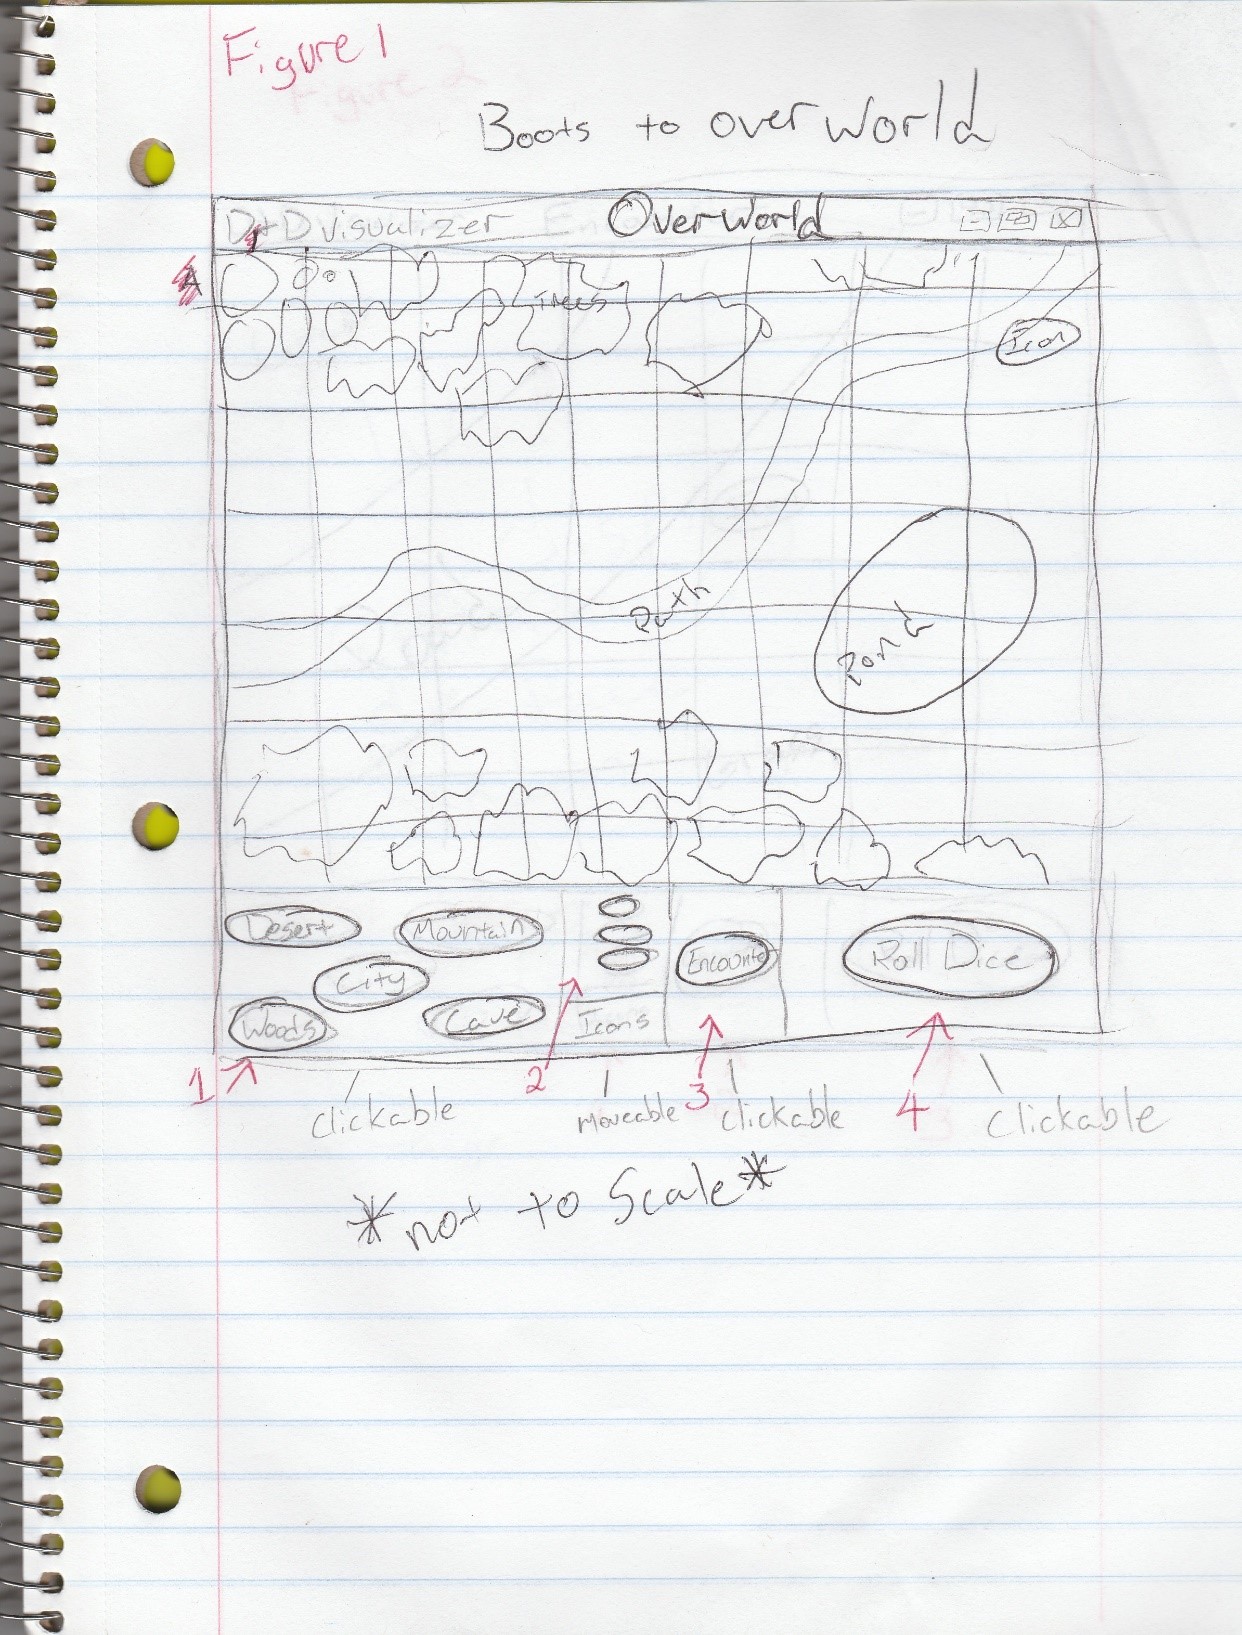 Figure 1
Boots to overworld
D+D visualizer OverWorld
1
A
Trees
Icon
Path
Pond
Desert Mountain
City
Woods Cave
Icons
Encounter
Roll Dice
1 2 3 4
clickable moveable clickable clickable
*not to Scale*